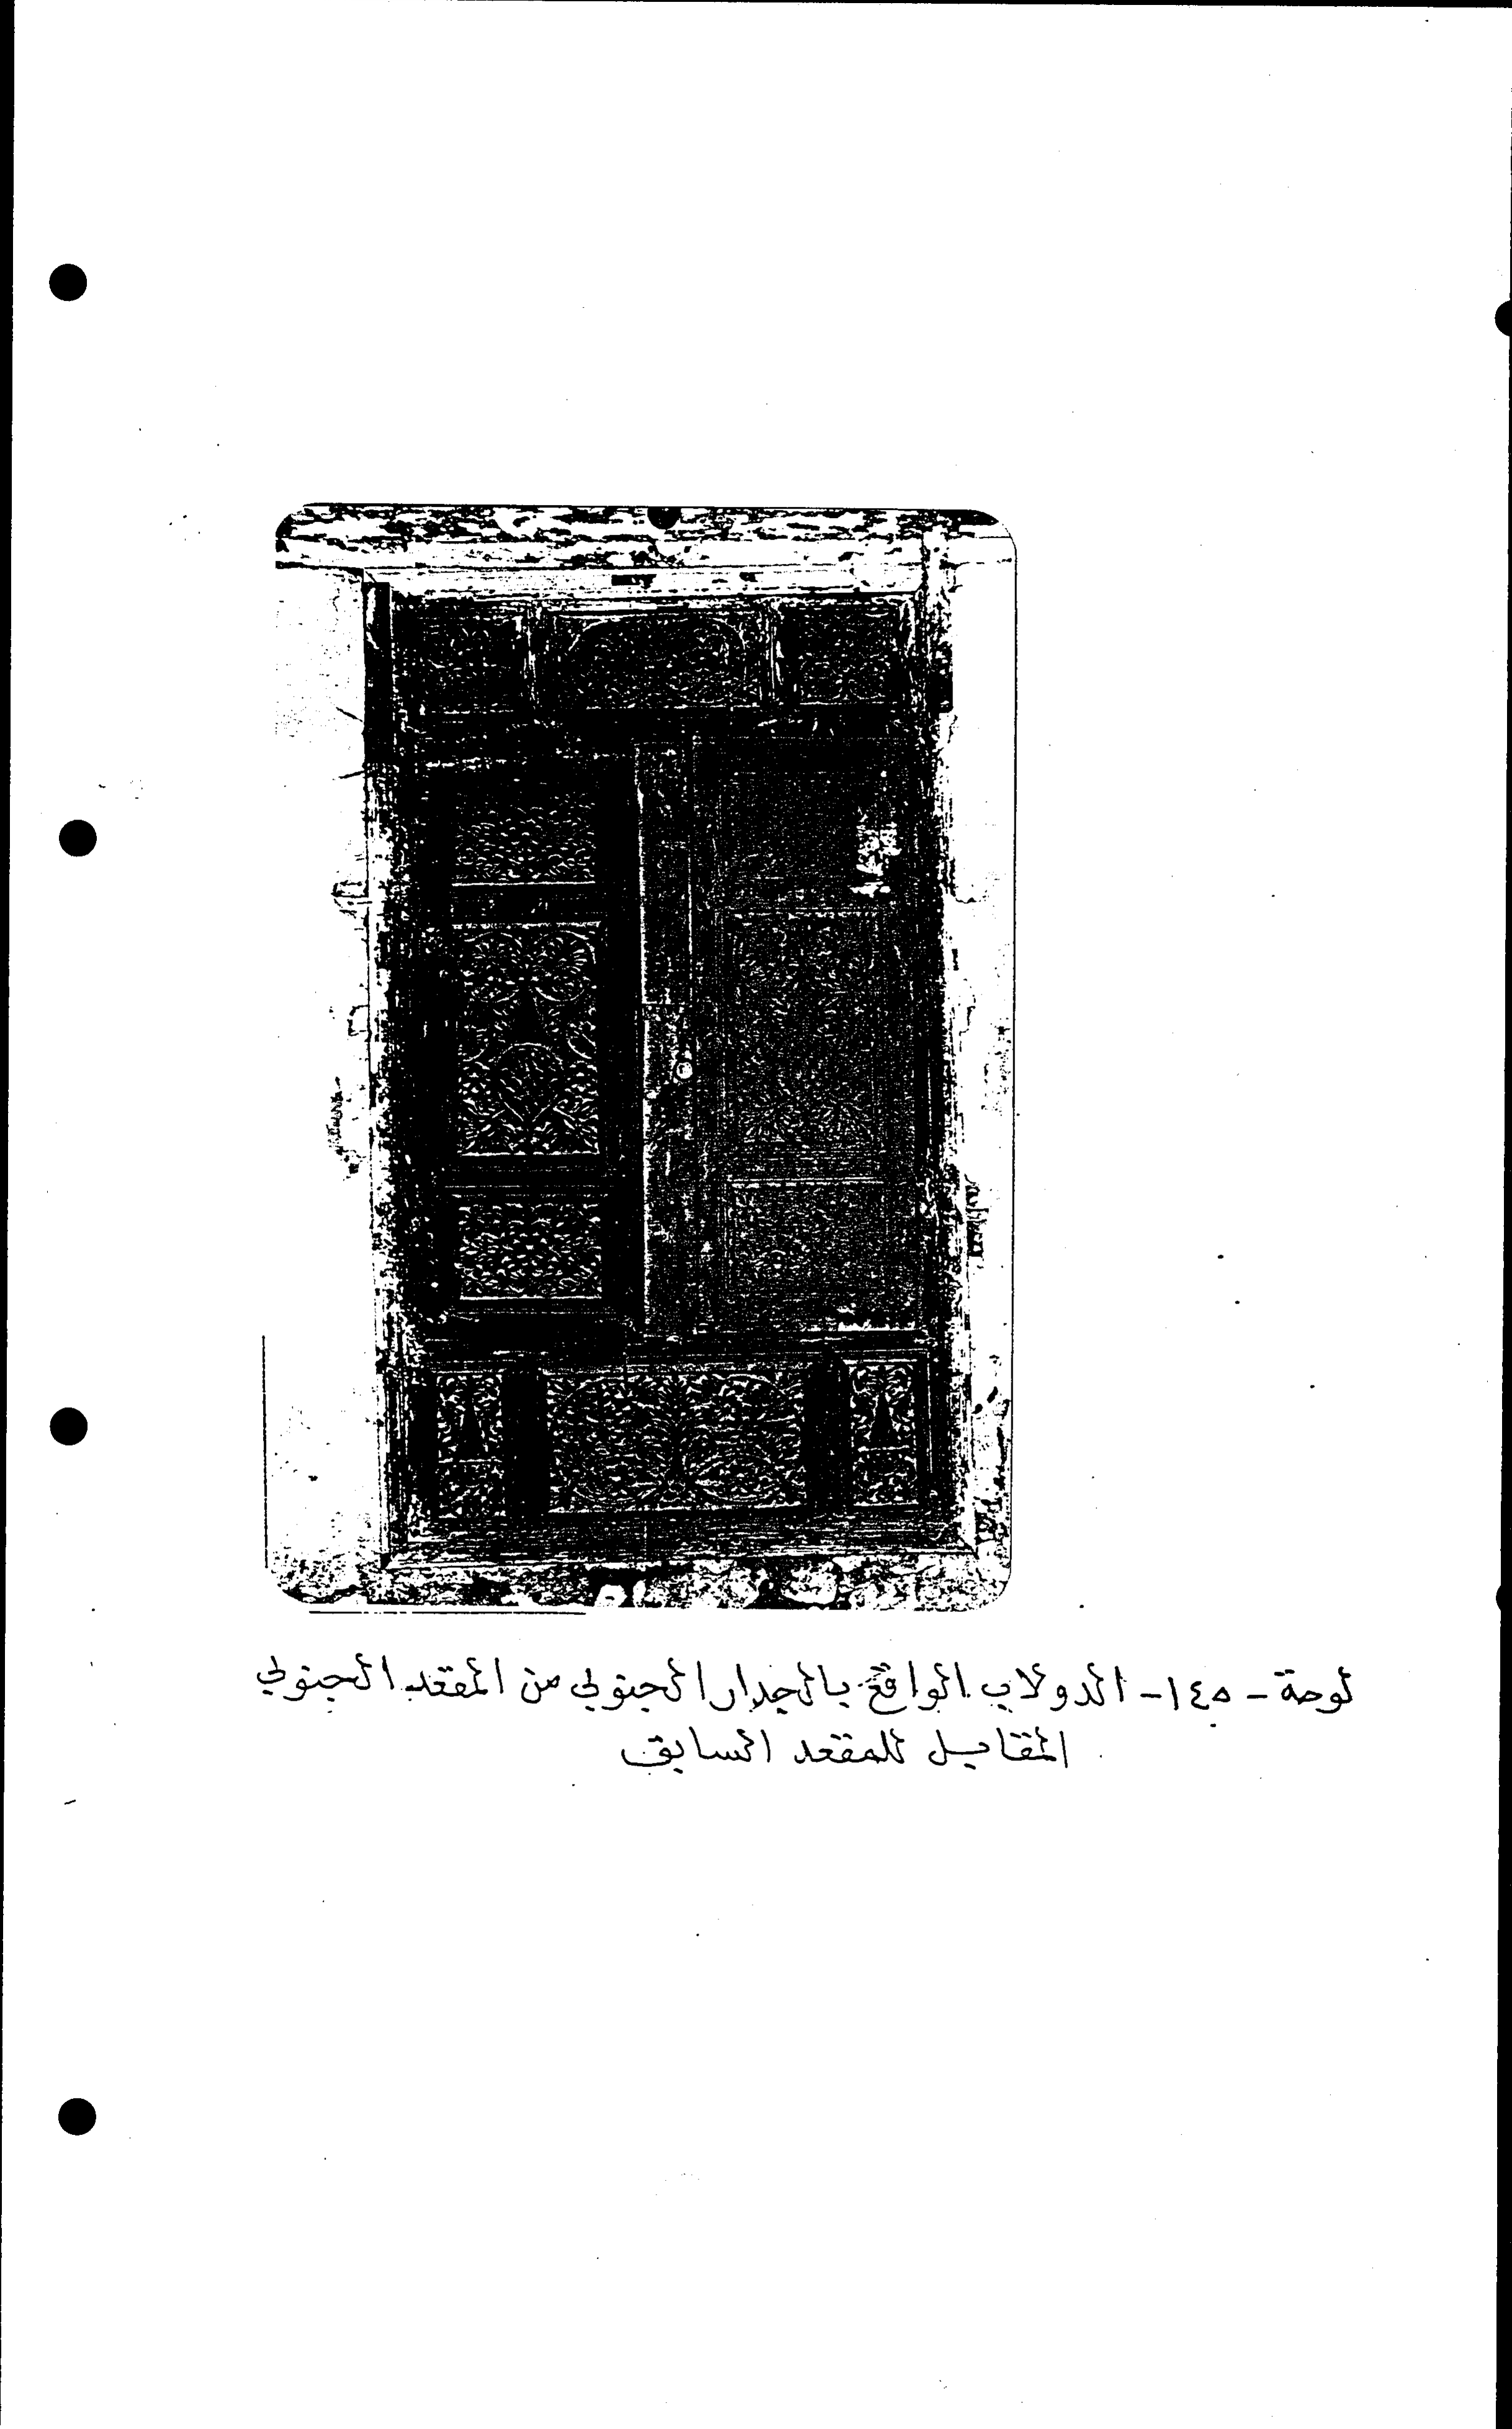 لوحة - ١٤٥ - الدولاب الواقع بالجدار الجنوبي من المقعد الجنوبي
المقابل للمقعد السابق